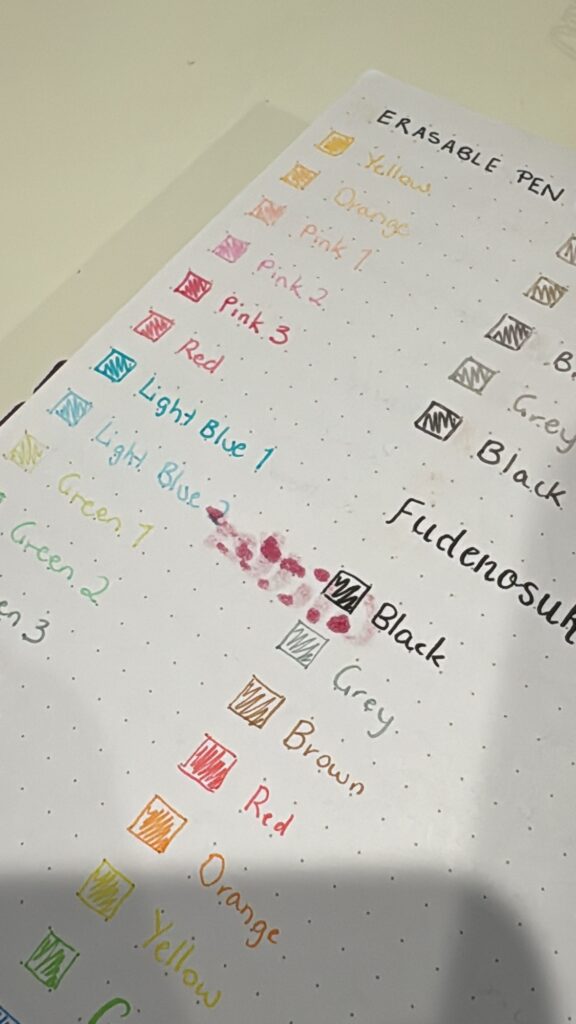 ERASABLE PEN
Yellow
Orange
Pink 1
Pink 2
Pink 3
Red
Light Blue 1
Light Blue 2
Green 1
Green 2
Grey
Black
Black
Grey
Brown
Red
Orange
Yellow